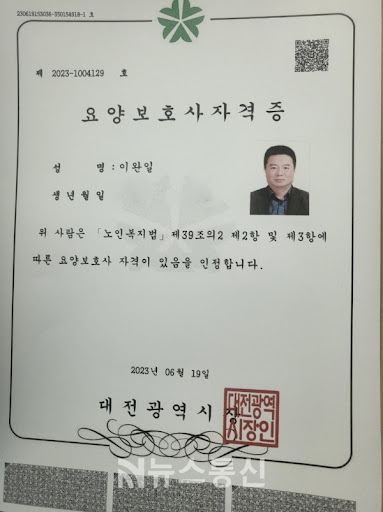 230619153036-350154918-1 호
제 2023-1004129 호
요양보호사자격증
성 명 : 이완일
생년월일
위 사람은 「노인복지법」 제39조의2 제2항 및 제3항에
따른 요양보호사 자격이 있음을 인정합니다.
2023년 06월 19일
대전광역시장
대전광역
시장인
뉴스통신